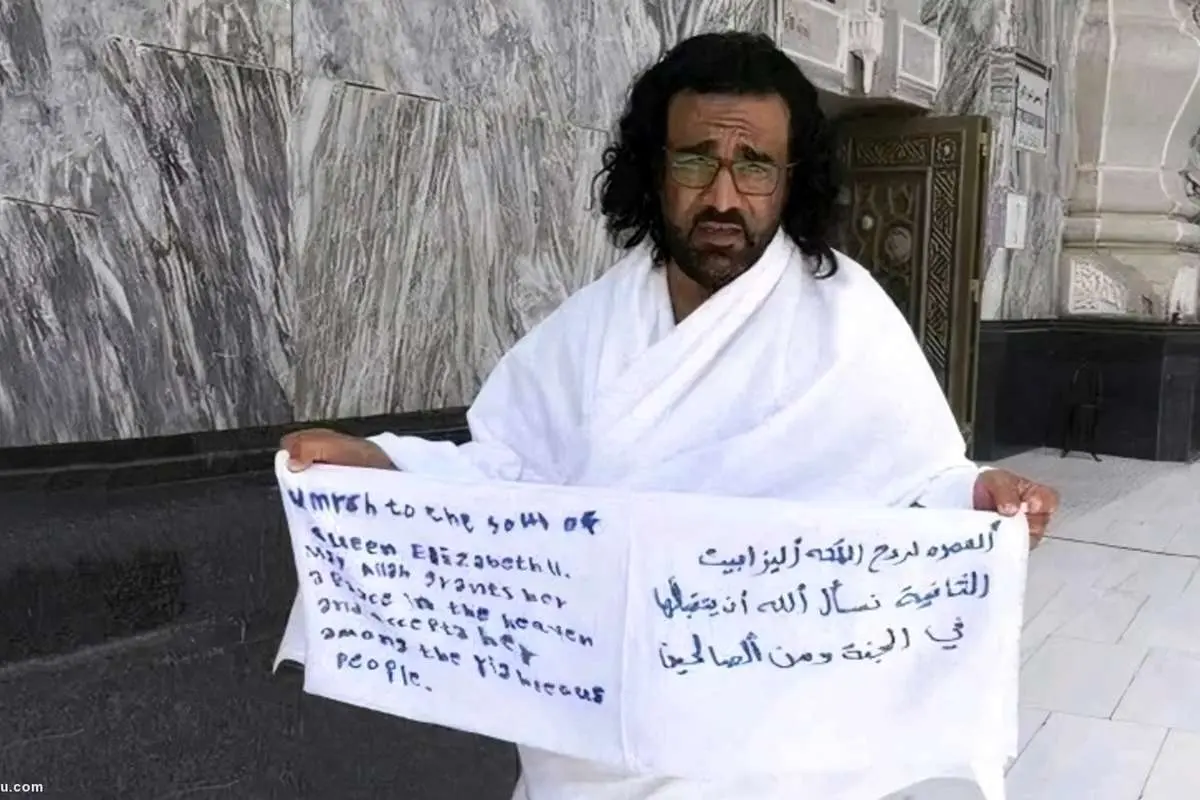 umrah to the soul of
Queen Elizabeth II.
May Allah grants her
a place in the heaven
and accepts her
among the righteous
people.
ألعمره لروح الملكه أليزابيث
الثانية نسأل ألله أن يتقبلها
في الجنة ومن ألصالحين
u.com